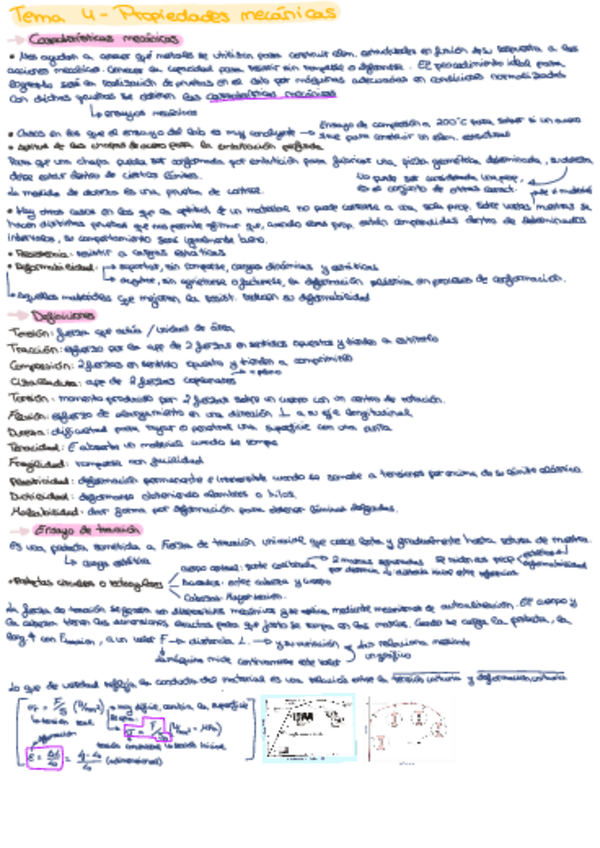 Tema 4 - Propiedades mecánicas
→ Características mecánicas
• Nos ayudan a conocer qué metales se utilizan para construir elem. estructurales en función de su respuesta a las
acciones mecánicas. Conocer su capacidad para resistir sin romperse o deformarse. El procedimiento ideal para
lograrlo será la realización de pruebas en el lab por máquinas adecuadas en condiciones normalizadas
Con dichas pruebas se obtienen las características mecánicas
↳ ensayos mecánicos
• Casos en los que el ensayo del lab es muy concluyente → Ensayo de compresión a 200°C para saber si un acero
sirve para construir un elem. estructural
• Aptitud de las chapas de acero para la embutición profunda
Para que una chapa pueda ser conformada por embutición para fabricar una pieza geométrica determinada, su dureza
debe estar dentro de ciertos límites.
No puede ser considerada una prop,
es el conjunto de otras caract.
La medida de dureza es una prueba de control.
• Hay otros casos en los que la aptitud de un material no puede conocerse a una sola prop. Sobre estas muestras se
hacen distintas pruebas que nos permite afirmar que, cuando esas prop. están comprendidas dentro de determinados
intervalos, su comportamiento será igualmente bueno.
• Resistencia: resistir a cargas estáticas
• Deformabilidad: → soportar, sin romperse, cargas dinámicas y estáticas
→ sin agrietarse o fracturarse, la deformación plástica en procesos de conformación.
↳ Aquellos materiales que mejoran la resist. reducen su deformabilidad
→ Definiciones
Tensión: fuerza que actúa / unidad de área
Tracción: esfuerzo por la apl de 2 fuerzas en sentidos opuestos y tienden a estirarlo
Compresión: 2 fuerzas en sentido opuesto y tienden a comprimirlo
Cizalladura: apl de 2 fuerzas coplanares
Torsión: momento producido por 2 fuerzas sobre un cuerpo con un centro de rotación.
Flexión: esfuerzo de en una dirección ⊥ a su eje longitudinal
Dureza: dificultad para rayar o penetrar una superficie con una punta
Tenacidad: E absorbe un material cuando se rompe
Fragilidad: romperse con facilidad
Plasticidad: deformación permanente e irreversible cuando se somete a tensiones por encima de su límite elástico.
Ductilidad: deformarse obteniendo alambres o hilos.
Maleabilidad: dar forma por deformación para obtener láminas delgadas.
→ Ensayo de tracción
Es una probeta sometida a Fuerza de tracción uniaxial que crece lenta y gradualmente hasta rotura de muestra.
↳ carga estática
cuerpo central: parte calibrada → 2 marcas separadas
por distancia L: distancia inicial entre referencias
• Probetas circulares o rectangulares
entre cabeza y cuerpo
Cabezas:
La fuerza de tracción se genera en dispositivos mecánicos y se aplica mediante mecanismos de El cuerpo y
la cabeza tienen las dimensiones exactas para que justo se rompa en las marcas. Cuando se carga la probeta, la
long ↑ con F tracción, a un valor F → distancia L. → y su variación se relaciona mediante
un gráfico
↳ la máquina mide continuamente este valor
Lo que de verdad refleja la conducta del material es una relación entre la tensión unitaria y deformación unitaria
σ = F/S (N/mm²) → muy difícil, cambia la superficie
↳ tensión real
σ = F/S₀ (N/mm² = MPa)
tensión la sección inicial
ε = ΔL/L₀ = (L - L₀)/L₀ (adimensional)